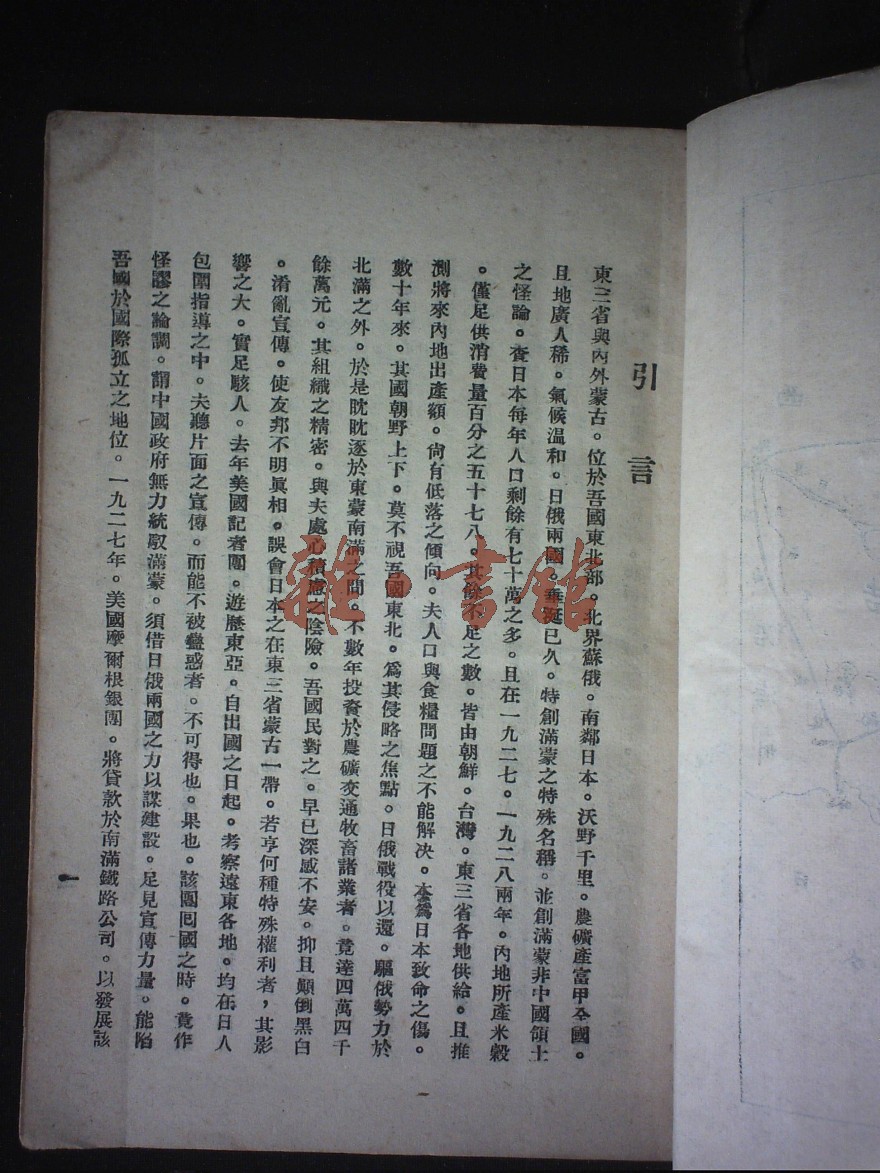 引言
東三省與內外蒙古。位於吾國東北部。北界蘇俄。南鄰日本。沃野千里。農礦產富甲全國。
且地廣人稀。氣候温和。日俄兩國。垂涎已久。特創滿蒙之特殊名稱。並創滿蒙非中國領土
之怪論。查日本每年人口剩餘有七十萬之多。且在一九二七。一九二八兩年。內地所產米穀
。僅足供消費量百分之五十七八。其餘不足之數。皆由朝鮮。台灣。東三省各地供給。且推
測將來內地出產額。尙有低落之傾向。夫人口與食糧問題之不能解决。本爲日本致命之傷。
數十年來。其國朝野上下。莫不視吾國東北。爲其侵略之焦點。日俄戰役以還。驅俄勢力於
北滿之外。於是眈眈逐於東蒙南滿之間。不數年投資於農礦交通牧畜諸業者。竟達四萬四千
餘萬元。其組織之精密。與夫處心積慮之陰險。吾國民對之。早已深感不安。抑且顚倒黑白
。淆亂宣傳。使友邦不明眞相。誤會日本之在東三省蒙古一帶。若享何種特殊權利者，其影
響之大。實足駭人。去年美國記者團。遊歷東亞。自出國之日起。考察遠東各地。均在日人
包圍指導之中。夫聽片面之宣傳。而能不被蠱惑者。不可得也。果也。該團囘國之時。竟作
怪謬之論調。謂中國政府無力統馭滿蒙。須借日俄兩國之力以謀建設。足見宣傳力量。能陷
吾國於國際孤立之地位。一九二七年。美國摩爾根銀團。將貸款於南滿鐵路公司。以發展該
一
雜·書館